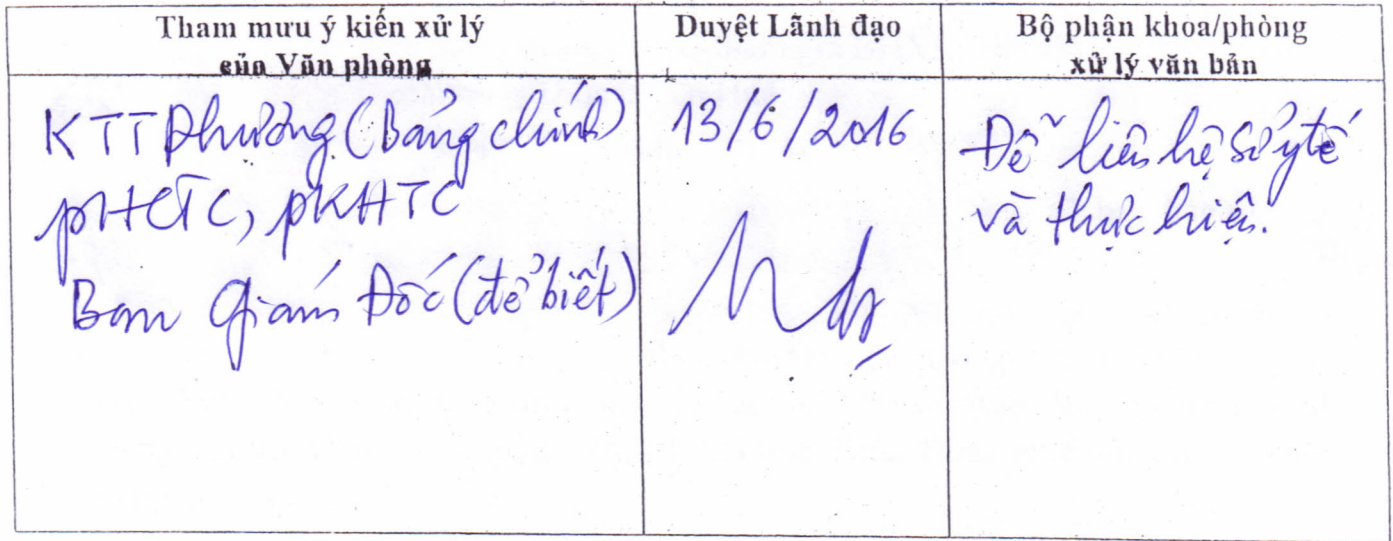 Tham mưu ý kiến xử lý
của Văn phòng
Duyệt Lãnh đạo
Bộ phận khoa/phòng
xử lý văn bản
KTT Phường (Bảng chính)
pHCTC, pKHTC
Ban Giám Đốc (để biết)
13/6/2016
Để liên hệ Sở y tế
và thực hiện.